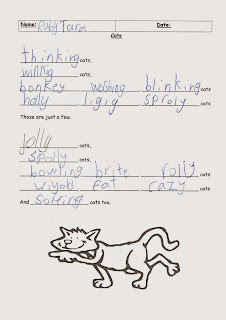 Name: Ruby Tarn Date:
Cats
thinking cats,
winkig cats,
bonkey woshing blinking cats
holly ligig sproly cats
Those are just a few.
Jolly cats,
spolly cats,
bowling brite rolly cats
wiyod fat cazy cats
And cats too.